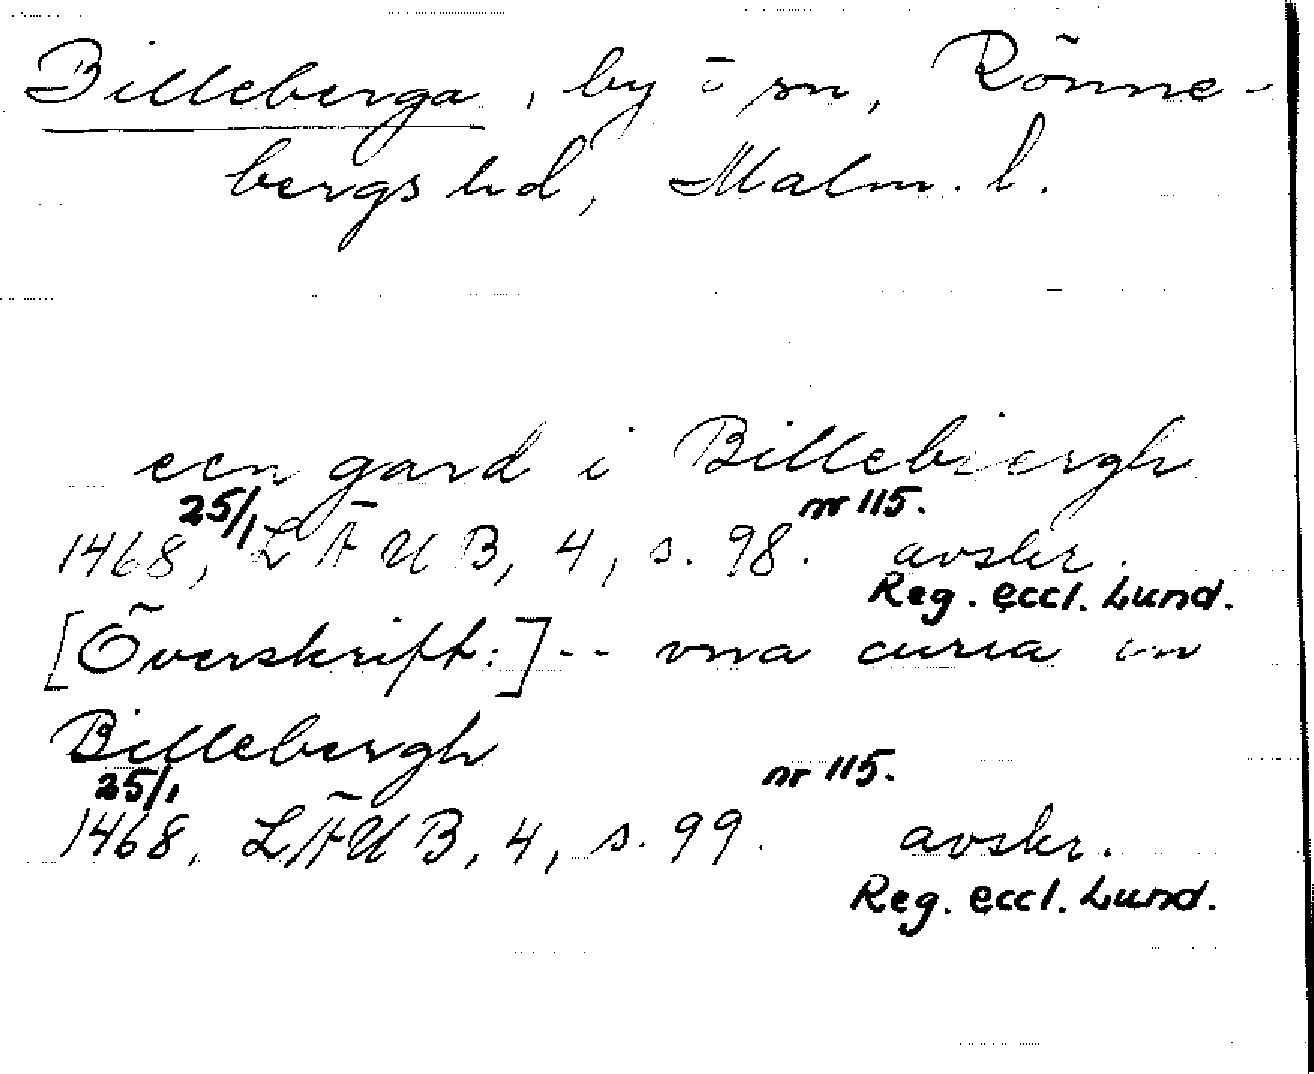 Billeberga, by o sn, Rönne-
bergs hd, Malm. l.
een gard i Billebiergh
25/1 nr 115.
1468, LÄUB, 4, s. 98. avskr.
Reg. eccl. Lund.
[Överskrift:] -- vna curia in
Billebergh
25/1 nr 115.
1468, LÄUB, 4, s. 99. avskr.
Reg. eccl. Lund.